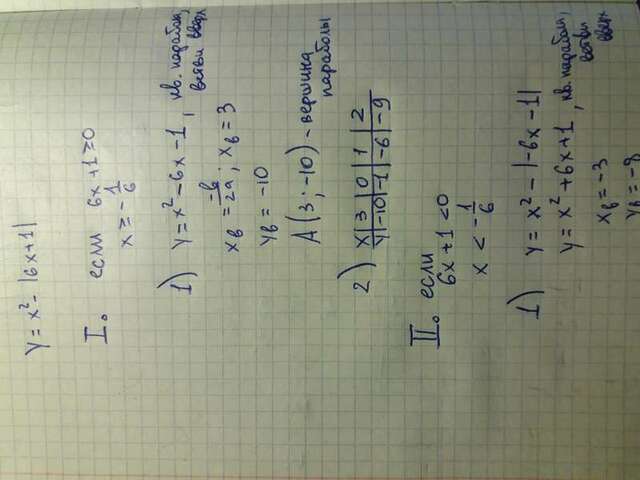 y = x² - |6x+1|
I. если 6x+1 ≥ 0
x ≥ -1/6
1) y = x² - 6x - 1, кв. парабола,
ветви вверх
xв = -b/2a ; xв = 3
yв = -10
A(3; -10) - вершина
параболы
2) x | 3 | 0 | 1 | 2
y | -10 | -1 | -6 | -9
II. если
6x+1 < 0
x < -1/6
1) y = x² - |-6x-1|
y = x² + 6x + 1, кв. парабола,
ветви
вверх
xв = -3
yв = -8